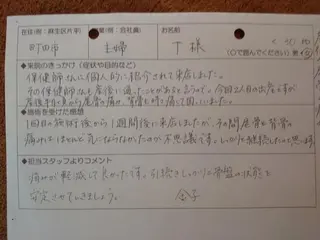 在住(例:麻生区片平) 職業(例:会社員) お名前
町田市 主婦 T様 <30代
(○で囲んでください) 男・女
●来院のきっかけ(症状や目的など)
保健師さんに個人的に紹介されて来店しました。
その保健師さんも産後に通ったことがあると言うので、今回2人目の出産ですが
産後半年頃から尾骨の痛み、背骨も時々痛くて困っていました。
●施術を受けた感想
1回目の施術後から1週間後に来店しましたが、その間尾骨と背骨の
痛みはほとんど気にならなかったのが不思議です。しっかり継続したいと思います
●担当スタッフよりコメント
痛みが軽減して良かったです。引続きしっかり骨盤の状態を
安定させていきましょう。 金子